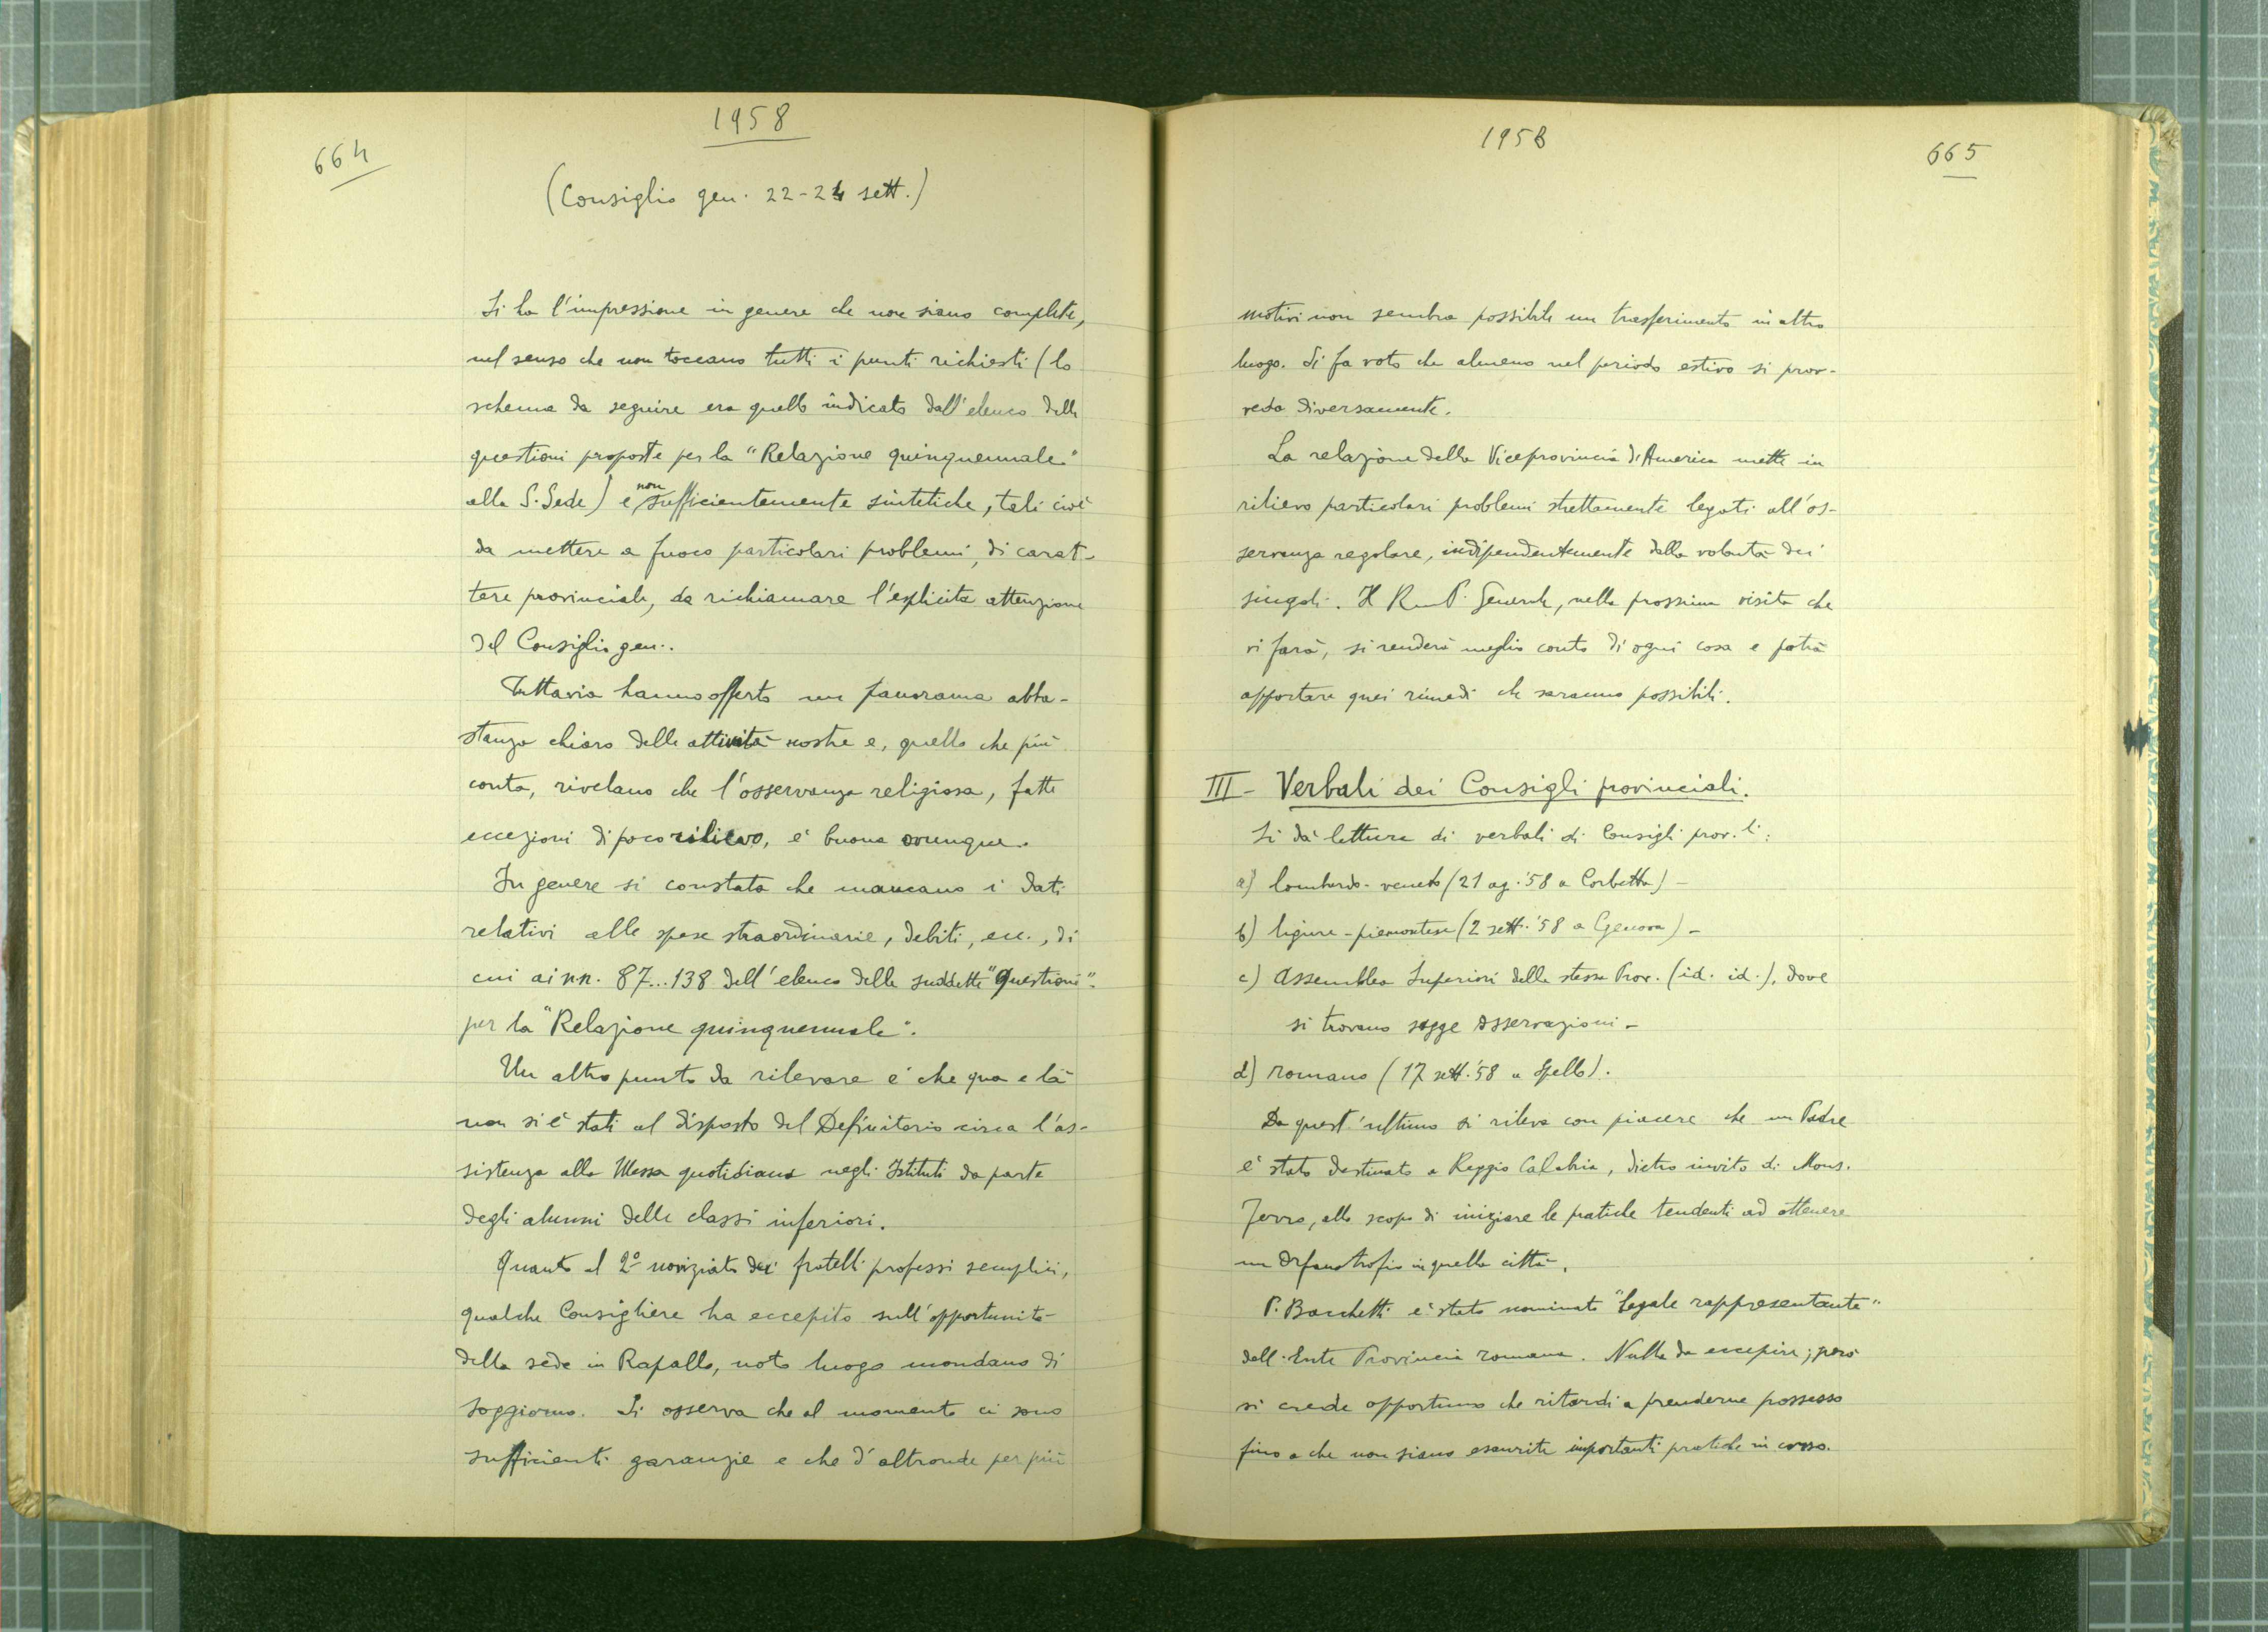 664
1958
(Consiglio gen. 22-24 sett.)
Si ha l'impressione in genere che non siano complete,
nel senso che non toccano tutti i punti richiesti (lo
schema da seguire era quello indicato dall'elenco delle
questioni proposte per la "Relazione quinquennale"
alla S. Sede) e non sufficientemente sintetiche, tali cioè
da mettere a fuoco particolari problemi, di carat-
tere provinciale, da richiamare l'esplicita attenzione
del Consiglio gen..
Tuttavia hanno offerto un panorama abba-
stanza chiaro delle attività nostre e, quello che più
conta, rivelano che l'osservanza religiosa, fatte
eccezioni di poco rilievo, è buona ovunque.
In genere si constata che mancano i dati
relativi alle spese straordinarie, debiti, ecc., di
cui ai nn. 87...138 dell'elenco delle suddette "questioni"
per la "Relazione quinquennale".
Un altro punto da rilevare è che qua e là
non si è stati al disposto del Definitorio circa l'as-
sistenza alla Messa quotidiana negli Istituti da parte
degli alunni delle classi inferiori.
Quanto al 2° noviziato dei fratelli professi semplici,
qualche Consigliere ha eccepito sull'opportunità
della sede in Rapallo, noto luogo mondano di
soggiorno. Si osserva che al momento ci sono
sufficienti garanzie e che d'altronde per più
1958
665
motivi non sembra possibile un trasferimento in altro
luogo. Si fa voto che almeno nel periodo estivo si prov-
veda diversamente.
La relazione della Viceprovincia d'America mette in
rilievo particolari problemi strettamente legati all'os-
servanza regolare, indipendentemente dalla volontà dei
singoli. Il Rev. P. Generale, nella prossima visita che
vi farà, si renderà meglio conto di ogni cosa e potrà
apportare quei rimedi che saranno possibili.
III - Verbali dei Consigli provinciali.
Si dà lettura di verbali di Consigli prov.li:
a) lombardo-veneto (21 ag. '58 a Corbetta) -
b) ligure-piemontese (2 sett. '58 a Genova) -
c) Assemblea Superiori della stessa Prov. (id. id.), dove
si trovano sagge osservazioni -
d) romano (17 sett. '58 a Spello).
Da quest'ultimo si rileva con piacere che un Padre
è stato destinato a Reggio Calabria, dietro invito di Mons.
Ferro, allo scopo di iniziare le pratiche tendenti ad ottenere
un Orfanotrofio in quella città.
P. Bacchetti è stato nominato "legale rappresentante"
dell'Ente Provincia romana. Nulla da eccepire; però
si crede opportuno che ritardi a prenderne possesso
fino a che non siano esaurite importanti pratiche in corso.